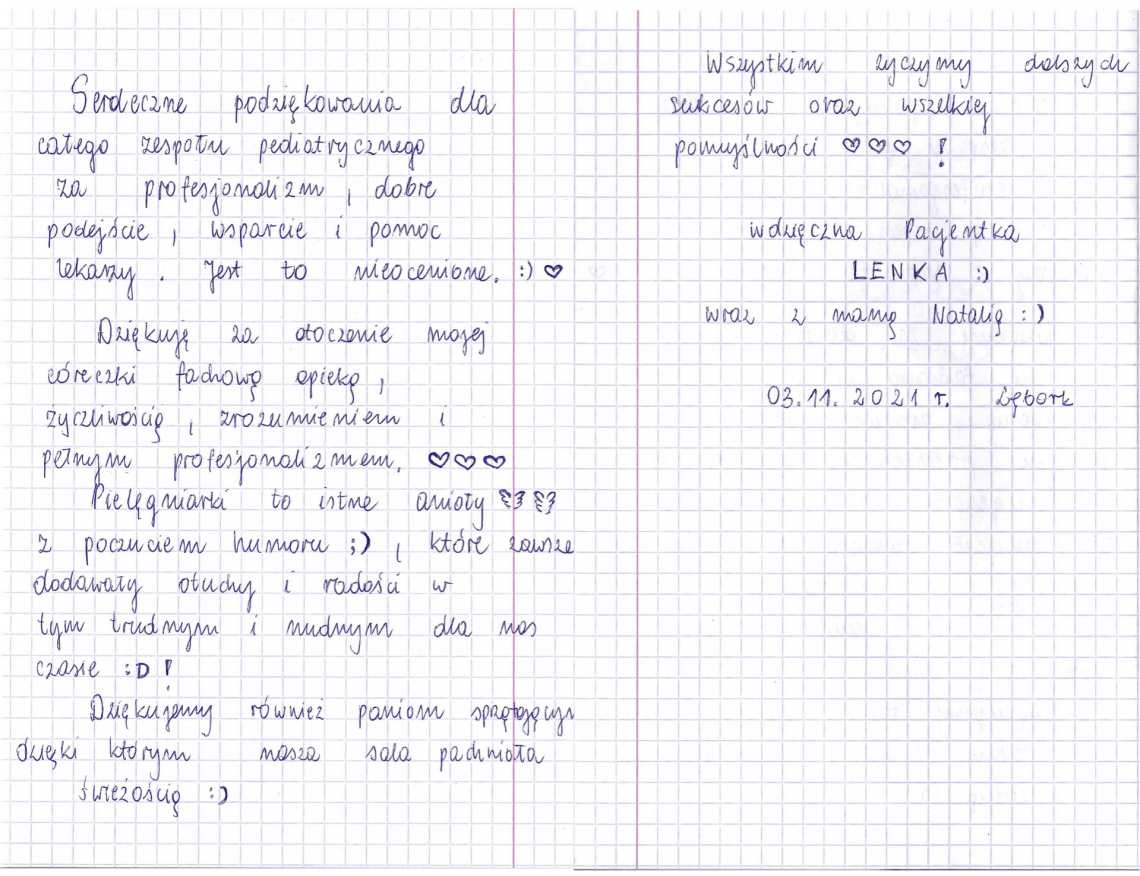 Serdeczne podziękowania dla
całego zespołu pediatrycznego
za profesjonalizm, dobre
podejście, wsparcie i pomoc
lekarzy. Jest to nieocenione. :) ♡
Dziękuję za otoczenie mojej
córeczki fachową opieką,
życzliwością, zrozumieniem i
pełnym profesjonalizmem. ♡♡♡
Pielęgniarki to istne anioły
z poczuciem humoru ;), które zawsze
dodawały otuchy i radości w
tym trudnym i nudnym dla nas
czasie :D !
Dziękujemy również paniom sprzątającym
dzięki którym nasza sala pachniała
świeżością :)
Wszystkim życzymy dalszych
sukcesów oraz wszelkiej
pomyślności ♡♡♡ !
wdzięczna Pacjentka
LENKA :)
wraz z mamą Natalią :)
03.11.2021 r. Lębork